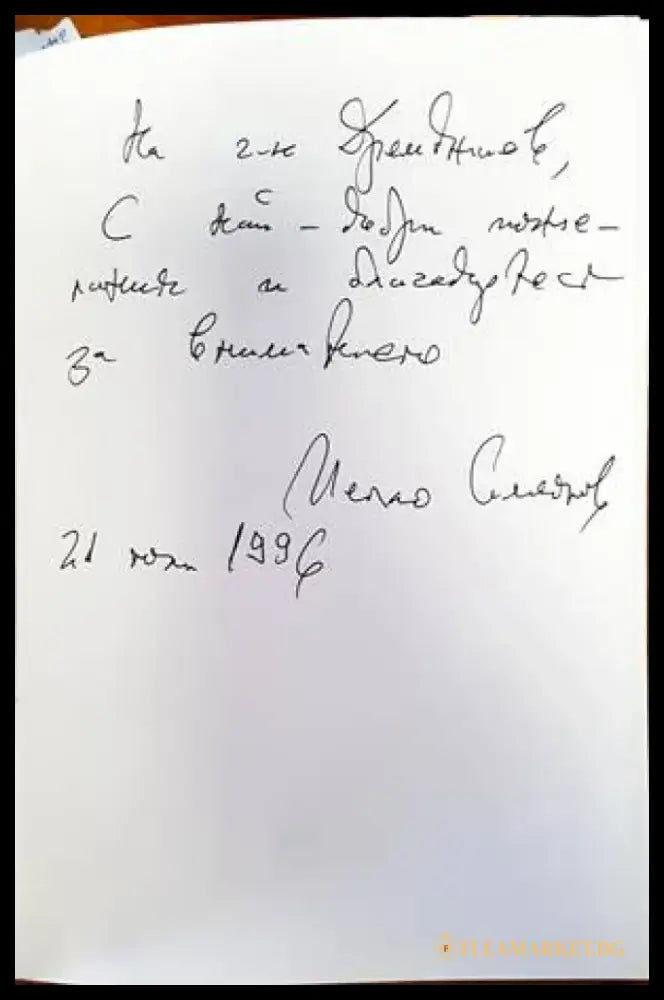 На г-н Дремджиев,
С най-добри поже-
лания и благодарност
за вниманието
21 юли 1996
FLEAMARKET.BG